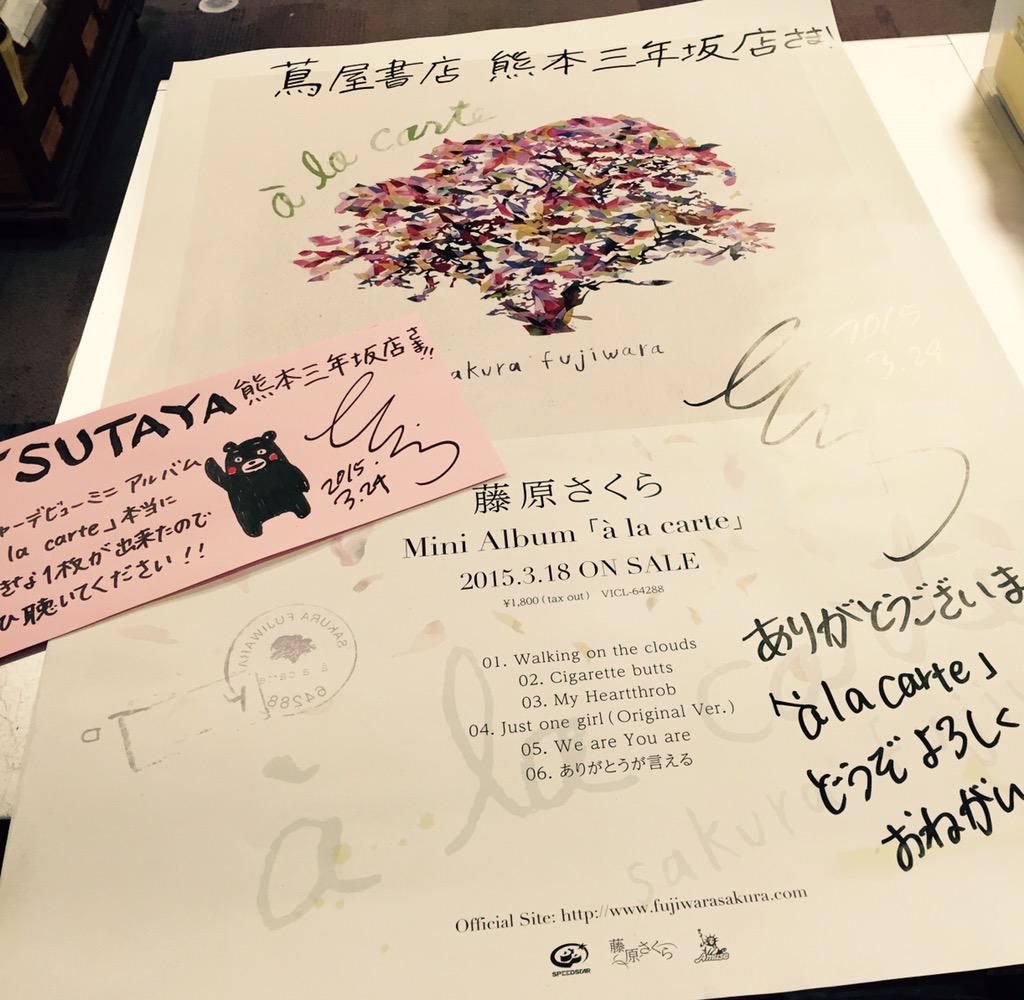 蔦屋書店 熊本三年坂店さま!
à la carte
akura fujiwara
2015
3.24
TSUTAYA 熊本三年坂店さま!!
ャーデビューミニアルバム
la carte」本当に
きな1枚が出来たので
ひ聴いてください!!
2015.
3.24
藤原さくら
Mini Album「à la carte」
2015.3.18 ON SALE
¥1,800(tax out) VICL-64288
SAKURA FUJIWARA
à la carte
64288
01. Walking on the clouds
02. Cigarette butts
03. My Heartthrob
04. Just one girl(Original Ver.)
05. We are You are
06. ありがとうが言える
ありがとうございま
「à la carte」
どうぞよろしく
おねがい
à la carte
sakura
Official Site: http://www.fujiwarasakura.com
SPEEDSTAR
藤原さくら
Amuse